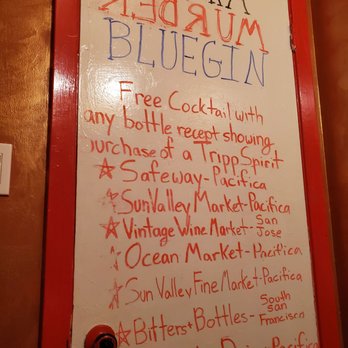 MURDER
BLUEGIN
Free Cocktail with
any bottle recept showing
purchase of a Tripp Spirit
☆ Safeway-Pacifica
☆ SunValley Market-Pacifica
☆ Vintage Wine Market-San Jose
☆ Ocean Market-Pacifica
☆ Sun Valley Fine Market-Pacifica
☆ Bitters+Bottles-South San Francisco